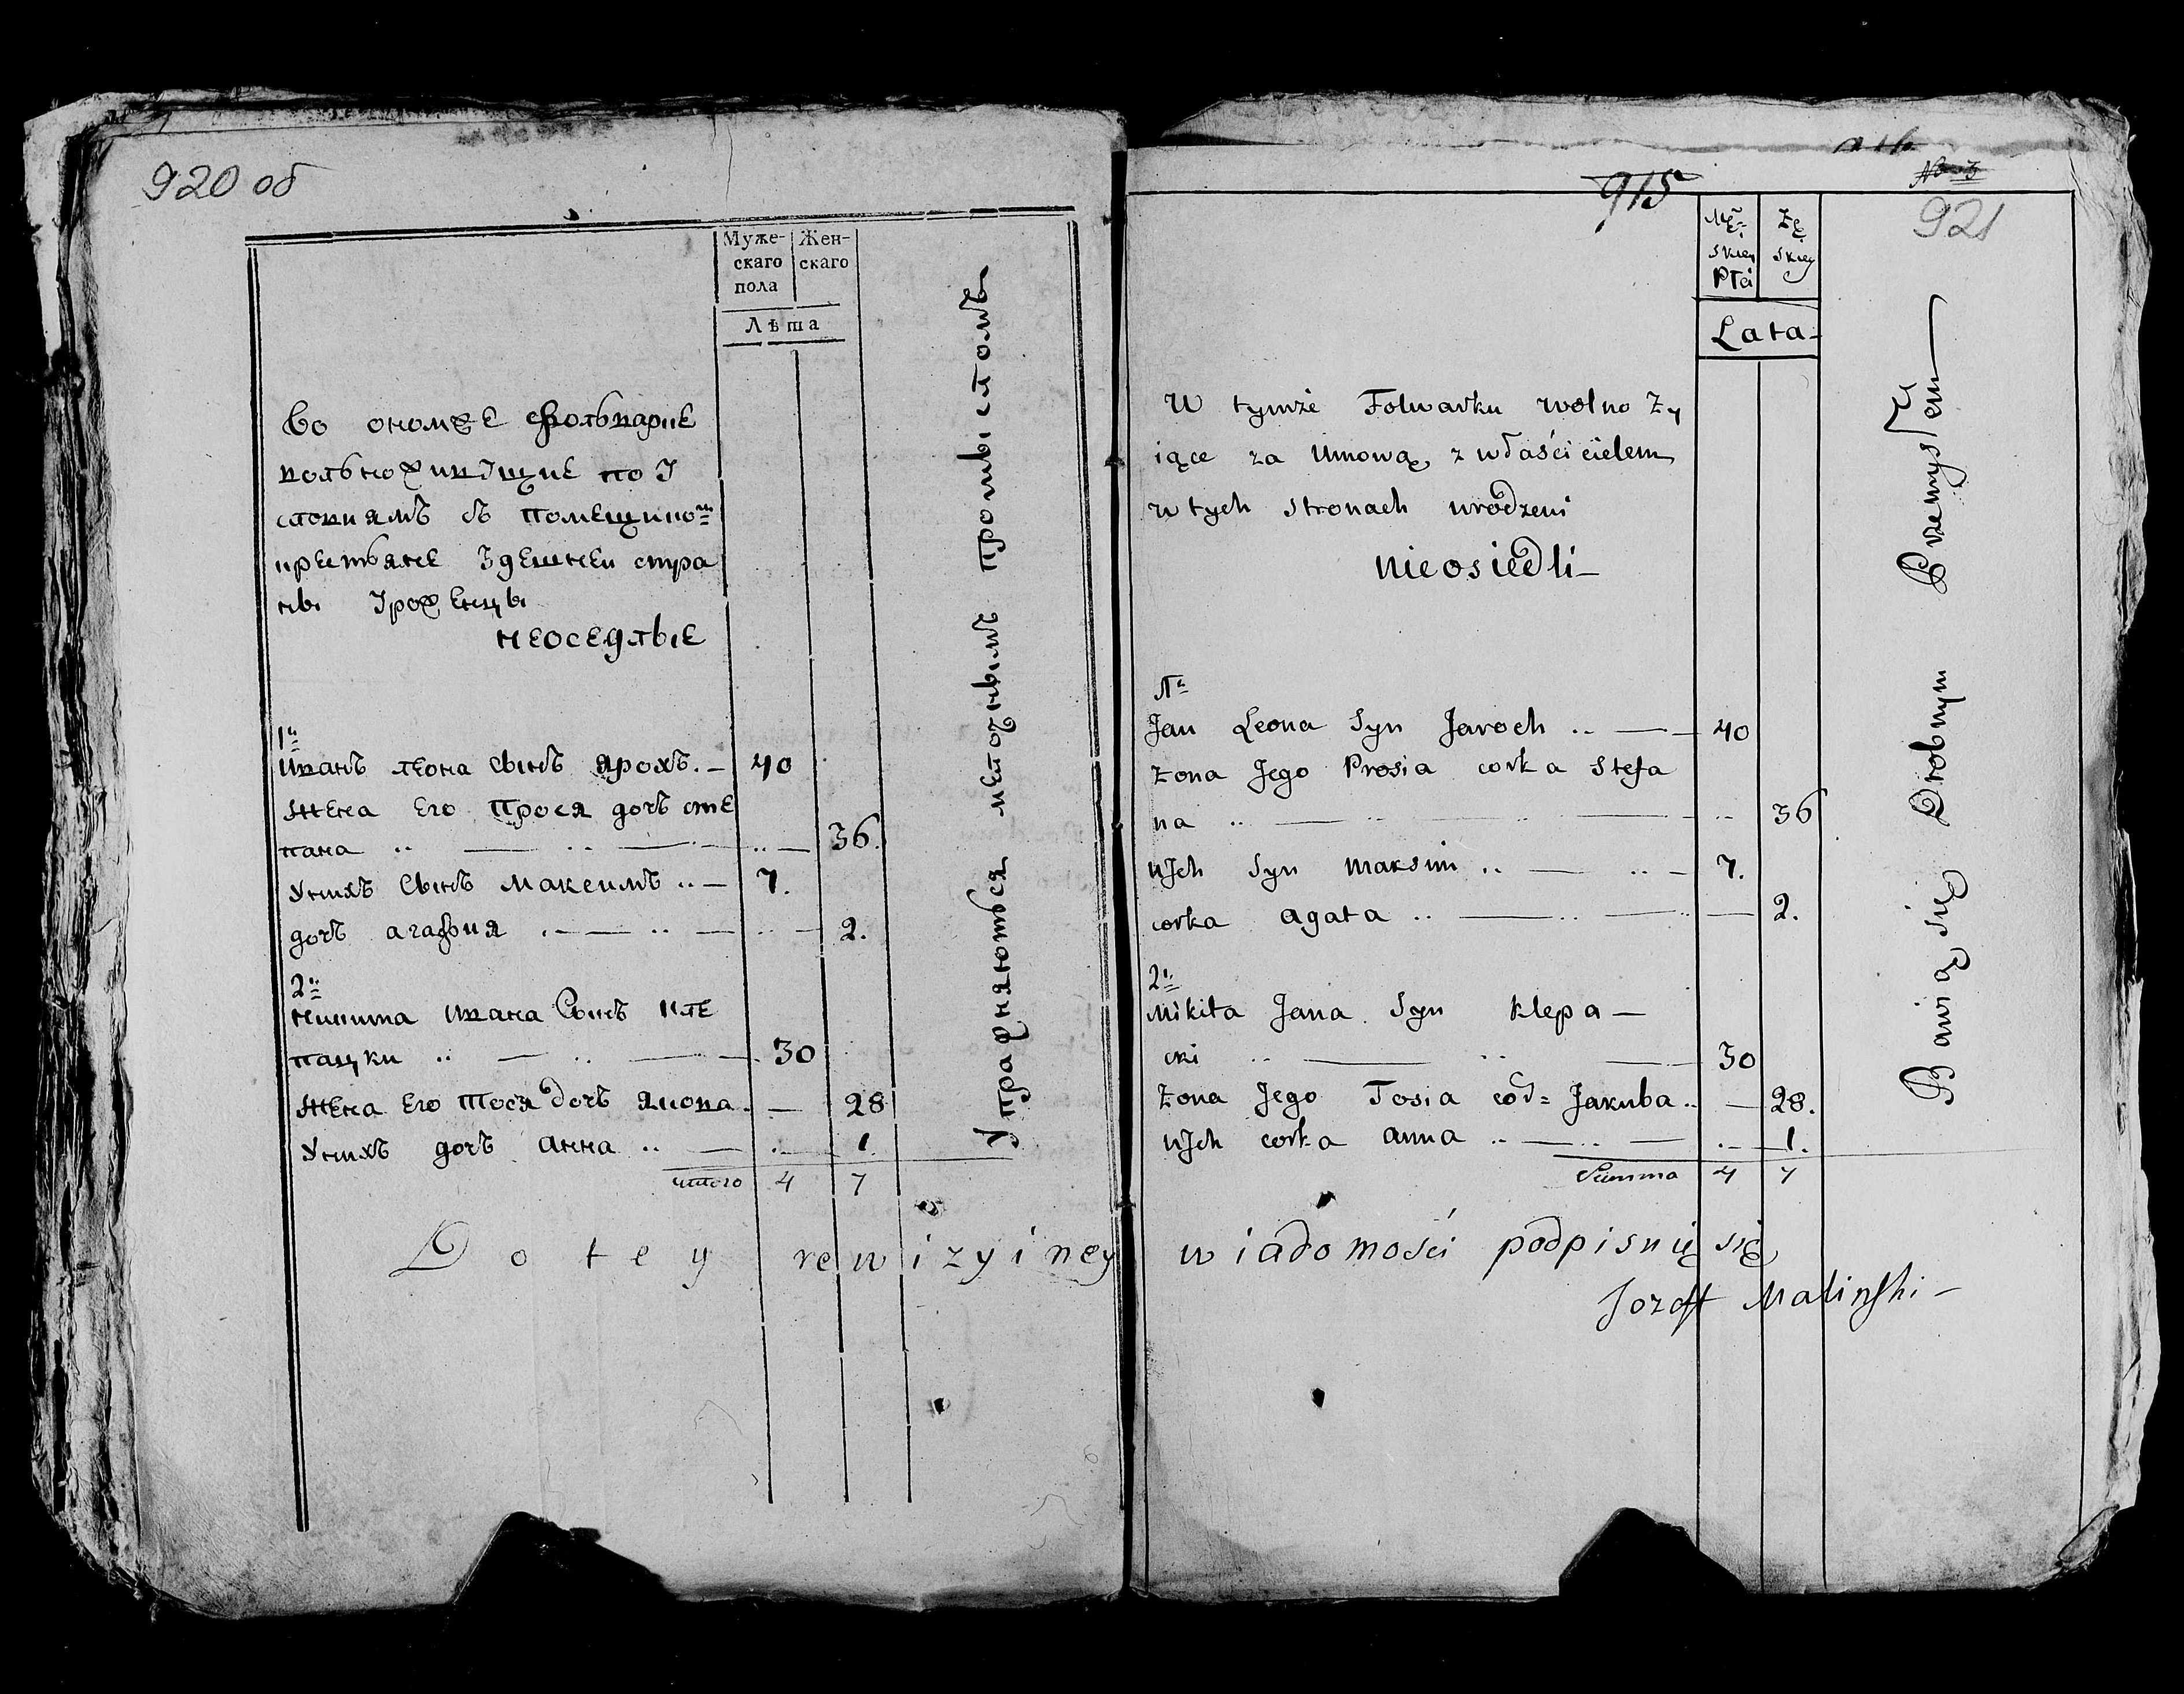 920 об
Муже-
скаго
пола
Жен-
скаго
Лѣта
Во ономже Фольварке
вольноживущие по у
словиямъ съ помещико:м
крестьяне здешнеи стра
ны уроженцы
неоседлые
1е
Иванъ леона сынъ ярохъ. — 40
жена его Прося дочь сте
пана .. — .. — .. — 36.
унихъ Сынъ максимъ .. — 7.
дочь агафия . — .. — .. — 2.
2е
никита ивана Сынъ кле
пацки .. — .. — 30
жена его тося дочь якова. — 28
унихъ дочь анна .. — .. — 1.
итого 4 7
Упражняються мелочнымъ промыстомъ
Do tey rewizyiney
915
No 3
921
Mę-
skiey
Płci
Zę
skiey
Lata
W tymże Folwarku wolno Zy
iące za Umową z właścicielem
w tych stronach urodzeni
nieosiedli —
1e
Jan Leona Syn Jaroch .. — 40
Zona Jego Prosia corka Stefa
na .. — .. — .. — .. 36
uJch Syn Maksim .. — .. — 7.
corka agata .. — .. — .. — 2.
2e
Mikita Jana Syn Klepa —
cki .. — .. — 30
Zona Jego Tosia cór= Jakuba .. — 28.
uJch corka anna .. — .. — .. — 1.
Summa 4 7
Bawią się Drobnym Przemysłem —
wiadomości podpisuię się
Jozeff Malinski —